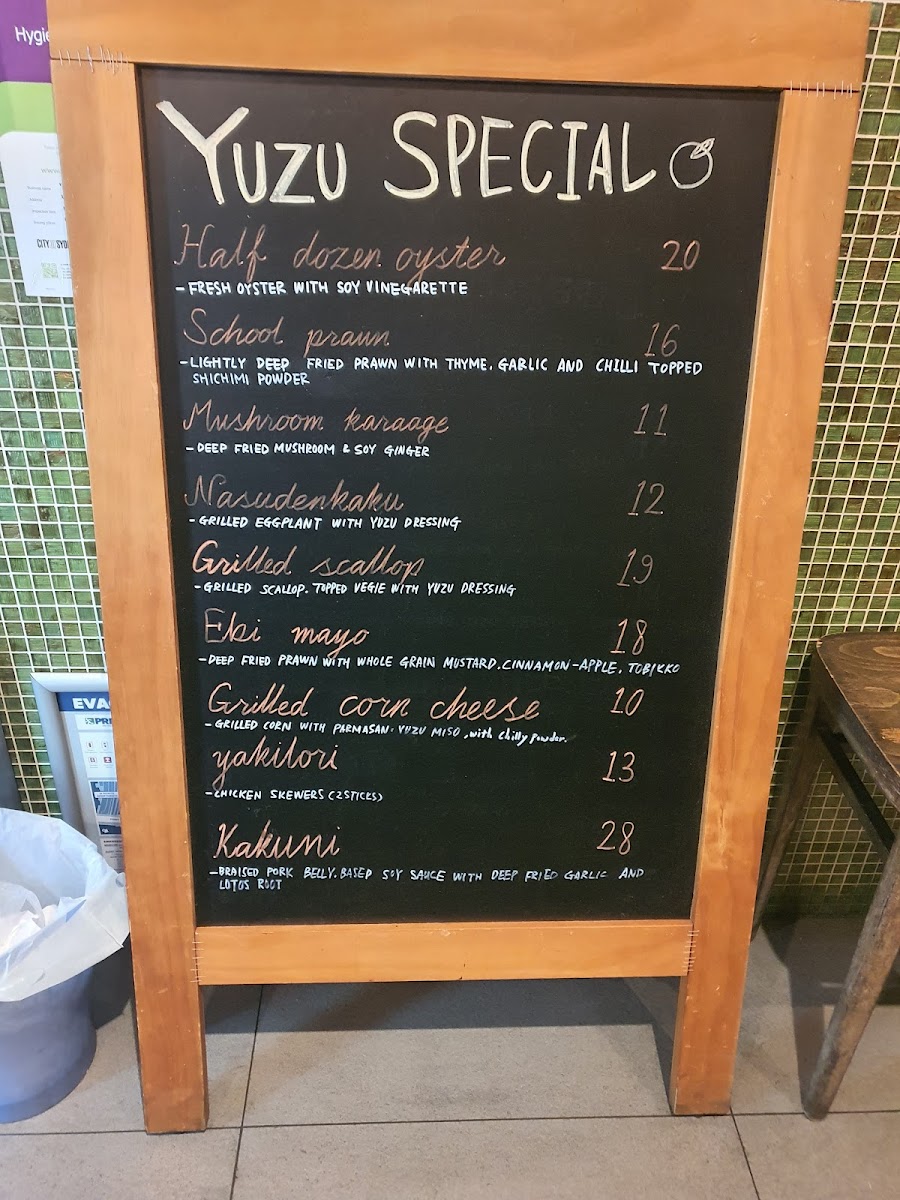 Hygie
CITY
SYD
EVA
YUZU SPECIAL
Half dozen oyster 20
- FRESH OYSTER WITH SOY VINEGARETTE
School prawn 16
- LIGHTLY DEEP FRIED PRAWN WITH THYME, GARLIC AND CHILLI TOPPED
SHICHIMI POWDER
Mushroom karaage 11
- DEEP FRIED MUSHROOM & SOY GINGER
Nasudenkaku 12
- GRILLED EGGPLANT WITH YUZU DRESSING
Grilled scallop 19
- GRILLED SCALLOP. TOPPED VEGIE WITH YUZU DRESSING
Ebi mayo 18
- DEEP FRIED PRAWN WITH WHOLE GRAIN MUSTARD, CINNAMON-APPLE, TOBIKKO
Grilled corn cheese 10
- GRILLED CORN WITH PARMASAN. YUZU MISO, with chilly powder.
yakitori 13
- CHICKEN SKEWERS (2STICKS)
Kakuni 28
- BRAISED PORK BELLY. BASED SOY SAUCE WITH DEEP FRIED GARLIC AND
LOTOS ROOT